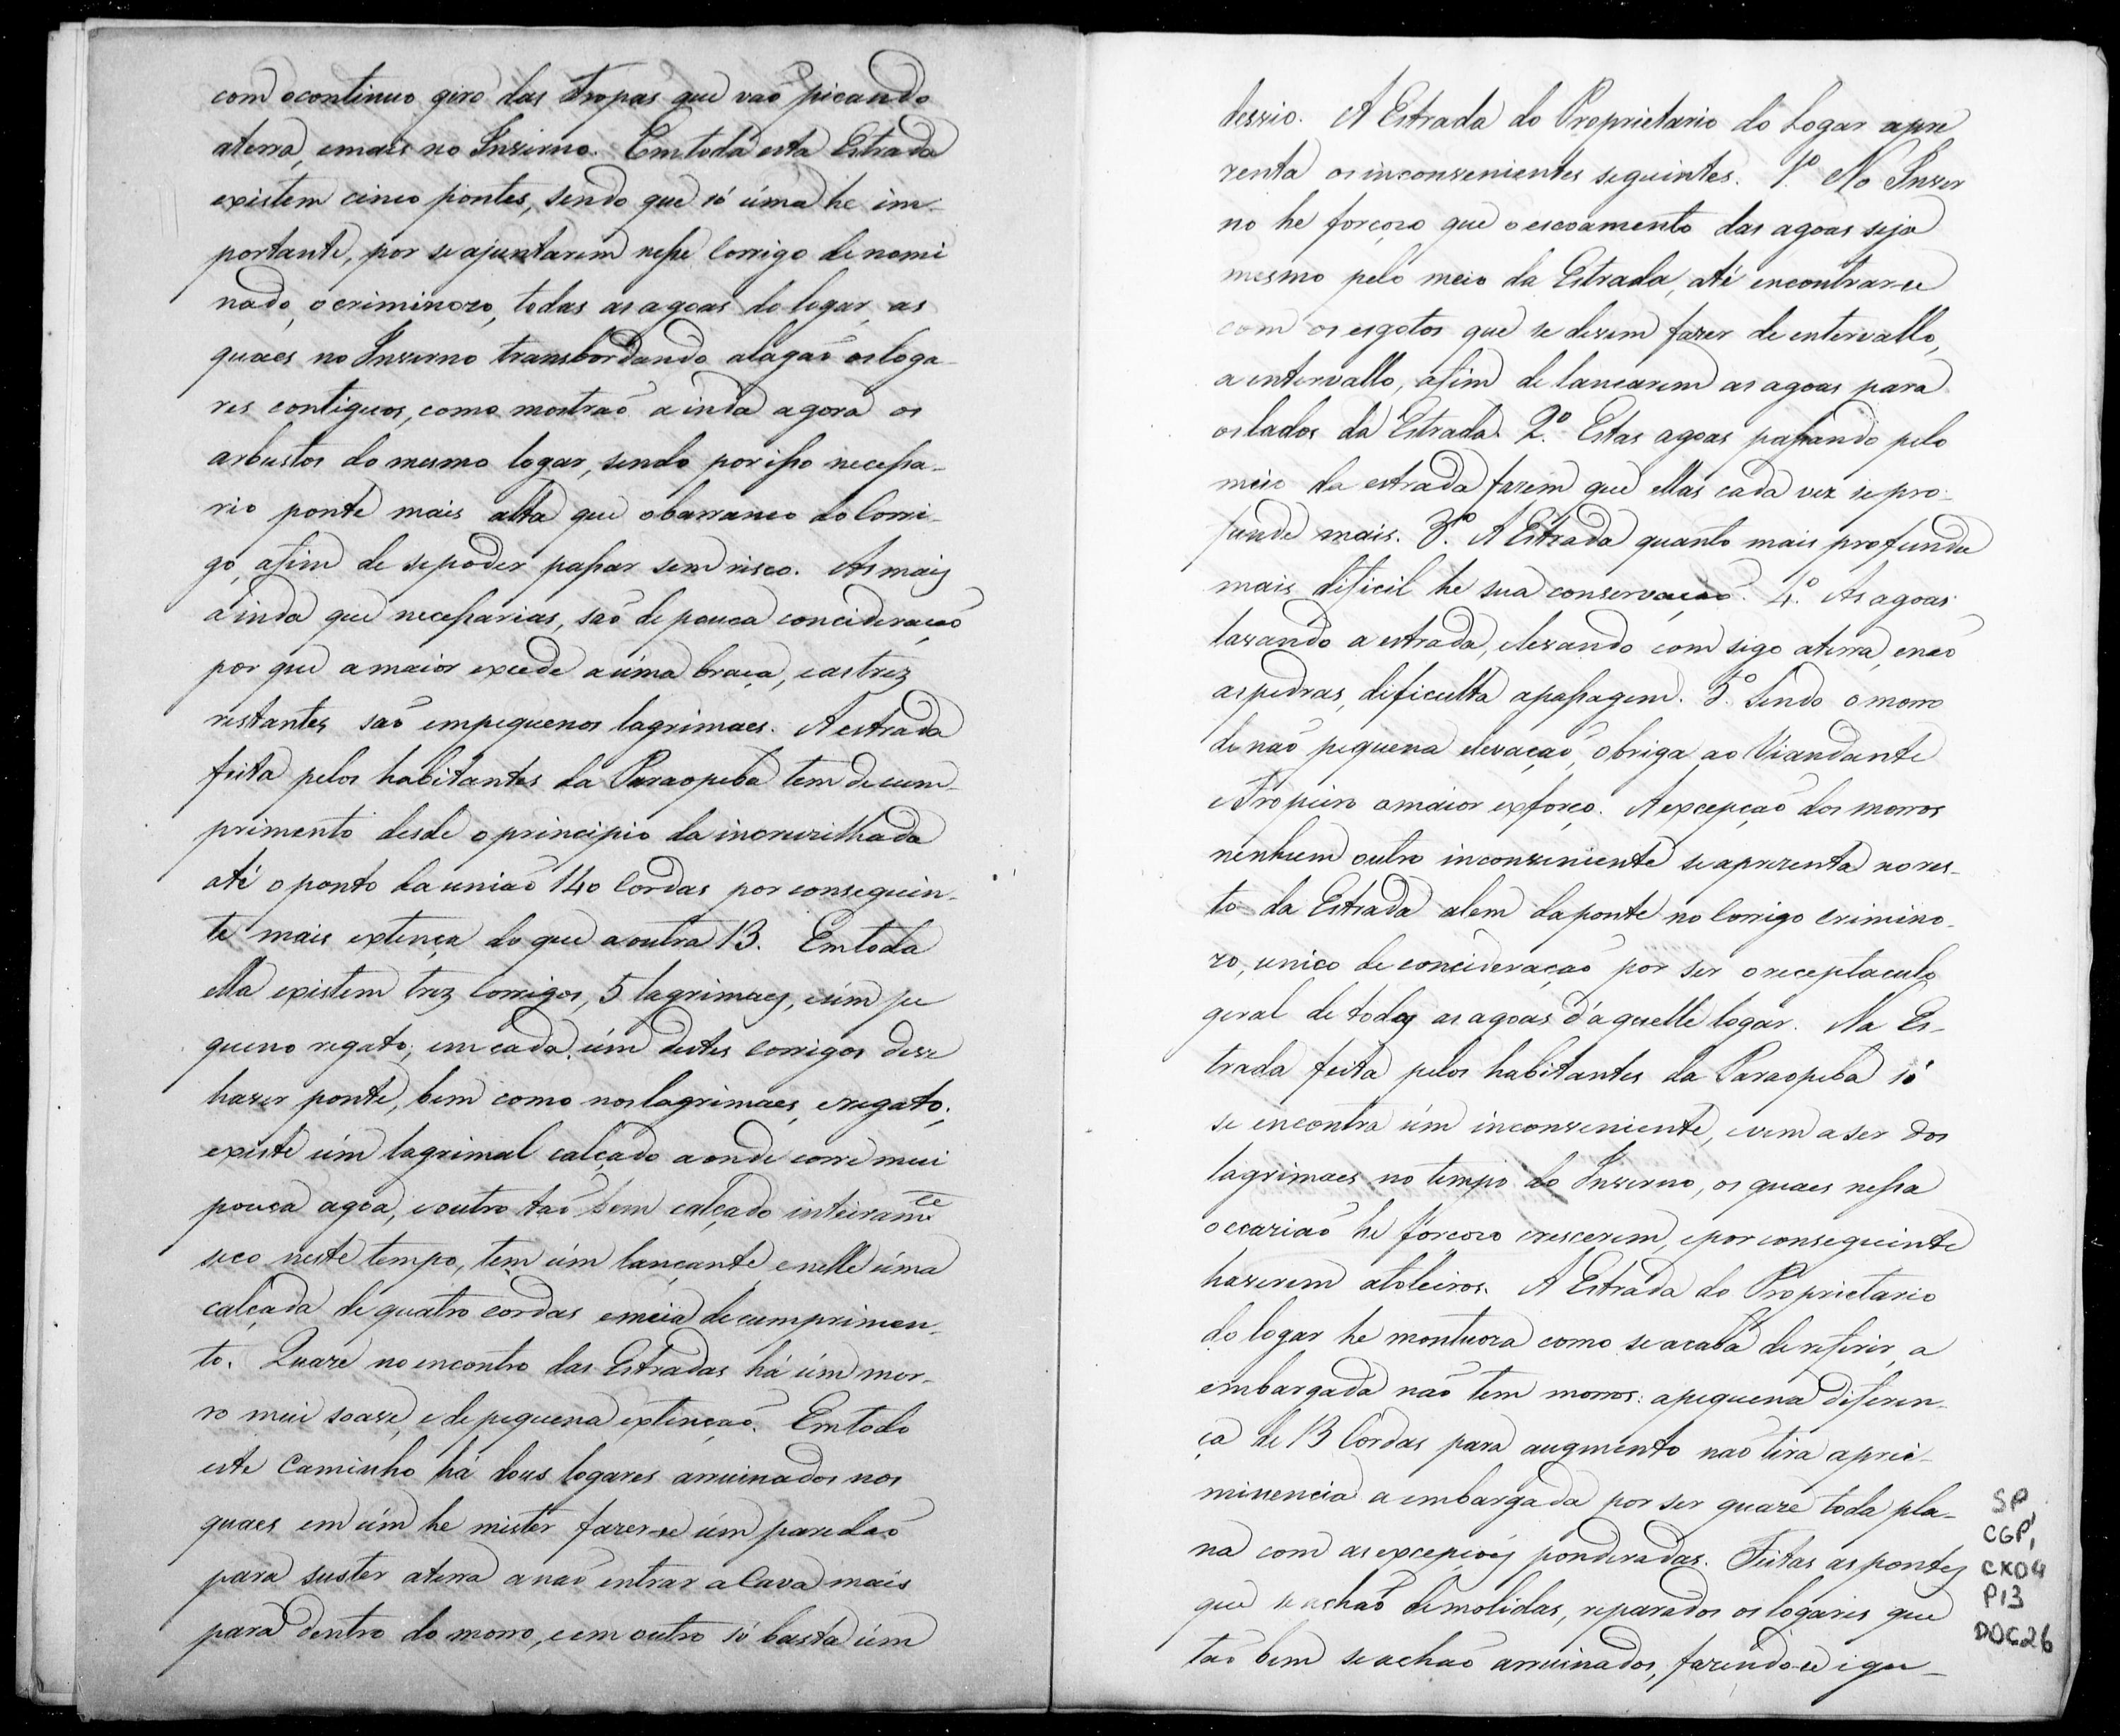 com ocontinuo giro das tropas que vaõ picando
aterra, emais no Inverno. Emtoda esta Estrada
existem cinco pontes, sendo que só úma he im-
portante, por seajuntarem nesse Corrigo denomi
nado, ocriminozo, todas as agoas do logar, as
quaes no Inverno transbordando alagaõ osloga-
res contiguos, como mostraõ ainda agora os
arbustos do mesmo logar, sendo porisso necessa-
rio ponte mais alta que obarranco do Corri-
go, afim de sepoder passar sem risco. As mais
ainda que necessarias, saõ de pouca concideraçaõ
por que amaior excede aúma braça, eastrez
restantes saõ empequenos lagrimaes. A estrada
feita pelos habitantes da Paraopeba tem decum-
primento desde oprincipio da incruzilhada
até oponto da uniaõ 140 Cordas por conseguin-
te mais extença do que aoutra 13. Emtoda
ella existem trez Corrigos, 5 lagrimaes, eúm pe
queno regato; em cada úm destes Corrigos deve
haver ponte, bem como nos lagrimaes, eregato;
existe úm lagrimal calçado aonde corre mui
pouca agoa, eoutro taõ bem calçado inteiramte
seco neste tempo, tem úm lançante, e nelle úma
calçada de quatro cordas emeia de cumprimen-
to. Quaze no encontro das Estradas há úm mor-
ro mui soave, e de pequena extençaõ. Emtodo
este Caminho há dous logares arruinados nos
quaes em úm he mister fazer-se úm paredaõ
para suster aterra anaõ entrar a Cava mais
para dentro do morro, eem outro só basta úm
desvio. A Estrada do Proprietario do Logar apre
zenta os inconvenientes seguintes. 1º. No Inver
no he forçozo que oescoamento das agoas seja
mesmo pelo meio da Estrada, até encontrar-se
com os esgotos que se devem fazer de entervallo,
a entervallo, afim de lancarem as agoas para
os lados da Estrada. 2º. Estas agoas passando pelo
meio da estrada fazem que ellas cada vez sepro-
funde mais. 3º. A Estrada quanto mais profunda
mais dificil he sua conservaçaõ. 4º. As agoas
lavando a estrada, elevando com sigo aterra, enaõ
as pedras, dificulta apassagem. 5º. Sendo o morro
de naõ pequena elevaçaõ, obriga ao Viandante
eTropeiro amaior exforço. A excepçaõ dos morros
nenhum outro inconveniente se aprezenta no res-
to da Estrada alem da ponte no Corrigo crimino-
zo, unico de concideraçaõ por ser oreceptaculo
geral de todas as agoas d'aquelle logar. Na Es-
trada feita pelos habitantes da Paraopeba só
se encontra úm inconveniente, evem a ser dos
lagrimaes no tempo do Inverno, os quaes nessa
occaziaõ he forcozo crescerem, epor conseguinte
haverem atoleiros. A Estrada do Proprietario
do logar he montuoza como se acaba de referir, a
embargada naõ tem morros: apequena diferen-
ça de 13 Cordas para augmento naõ tira apree-
minencia a embargada por ser quaze toda pla-
na com as excepçoẽs ponderadas. Feitas as pontes
que se achaõ demolidas, reparados os logares que
taõ bem se achaõ arruinados, fazendo-se igu-
SP
CGP1
CX04
P13
DOC26